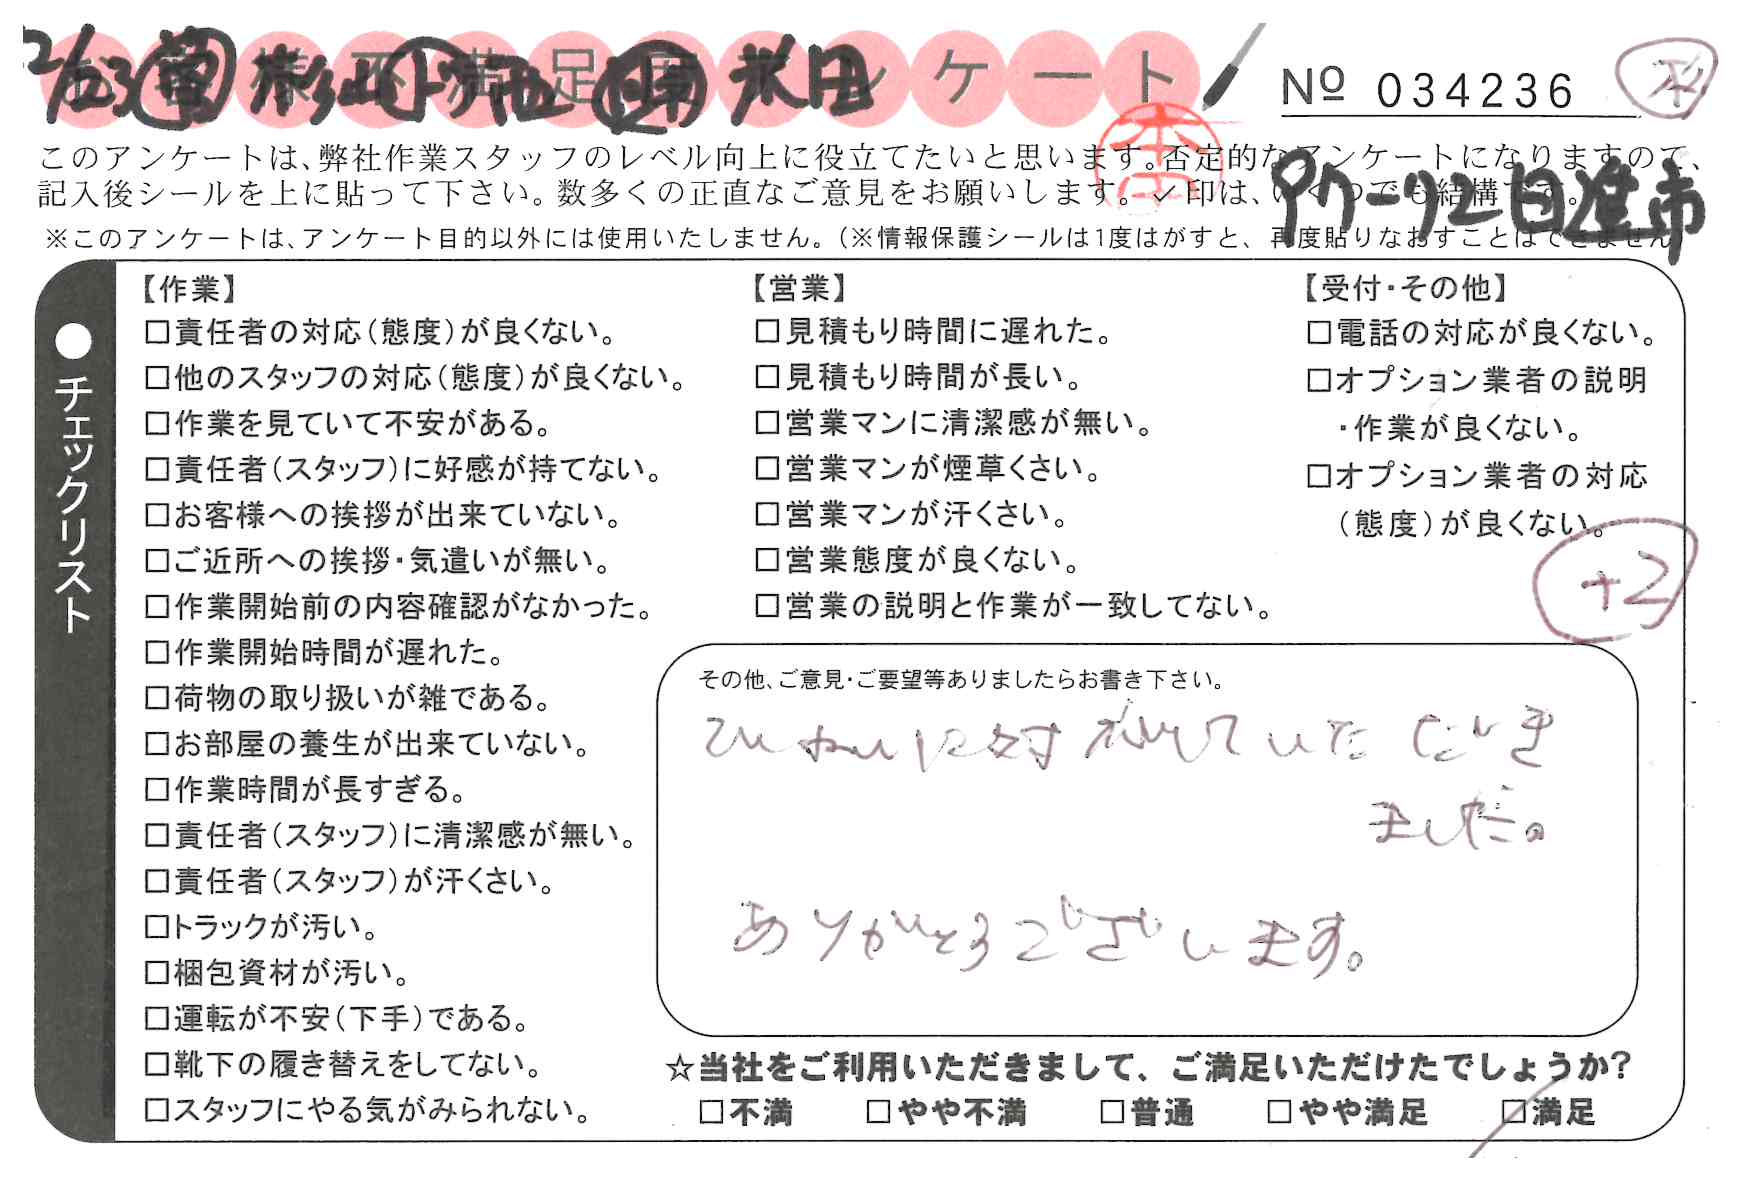 お客様不満足度アンケート
№ 034236
このアンケートは、弊社作業スタッフのレベル向上に役立てたいと思います。否定的なアンケートになりますので、
記入後シールを上に貼って下さい。数多くの正直なご意見をお願いします。✓印は、いくつでも結構です。
97-92日進市
※このアンケートは、アンケート目的以外には使用いたしません。(※情報保護シールは1度はがすと、再度貼りなおすことはできません)
●チェックリスト
【作業】
□責任者の対応(態度)が良くない。
□他のスタッフの対応(態度)が良くない。
□作業を見ていて不安がある。
□責任者(スタッフ)に好感が持てない。
□お客様への挨拶が出来ていない。
□ご近所への挨拶・気遣いが無い。
□作業開始前の内容確認がなかった。
□作業開始時間が遅れた。
□荷物の取り扱いが雑である。
□お部屋の養生が出来ていない。
□作業時間が長すぎる。
□責任者(スタッフ)に清潔感が無い。
□責任者(スタッフ)が汗くさい。
□トラックが汚い。
□梱包資材が汚い。
□運転が不安(下手)である。
□靴下の履き替えをしてない。
□スタッフにやる気がみられない。
【営業】
□見積もり時間に遅れた。
□見積もり時間が長い。
□営業マンに清潔感が無い。
□営業マンが煙草くさい。
□営業マンが汗くさい。
□営業態度が良くない。
□営業の説明と作業が一致してない。
【受付・その他】
□電話の対応が良くない。
□オプション業者の説明
・作業が良くない。
□オプション業者の対応
(態度)が良くない。
+2
その他、ご意見・ご要望等ありましたらお書き下さい。
ていねいに対応していただき
ました。
ありがとうございます。
☆当社をご利用いただきまして、ご満足いただけたでしょうか?
□不満 □やや不満 □普通 □やや満足 □満足